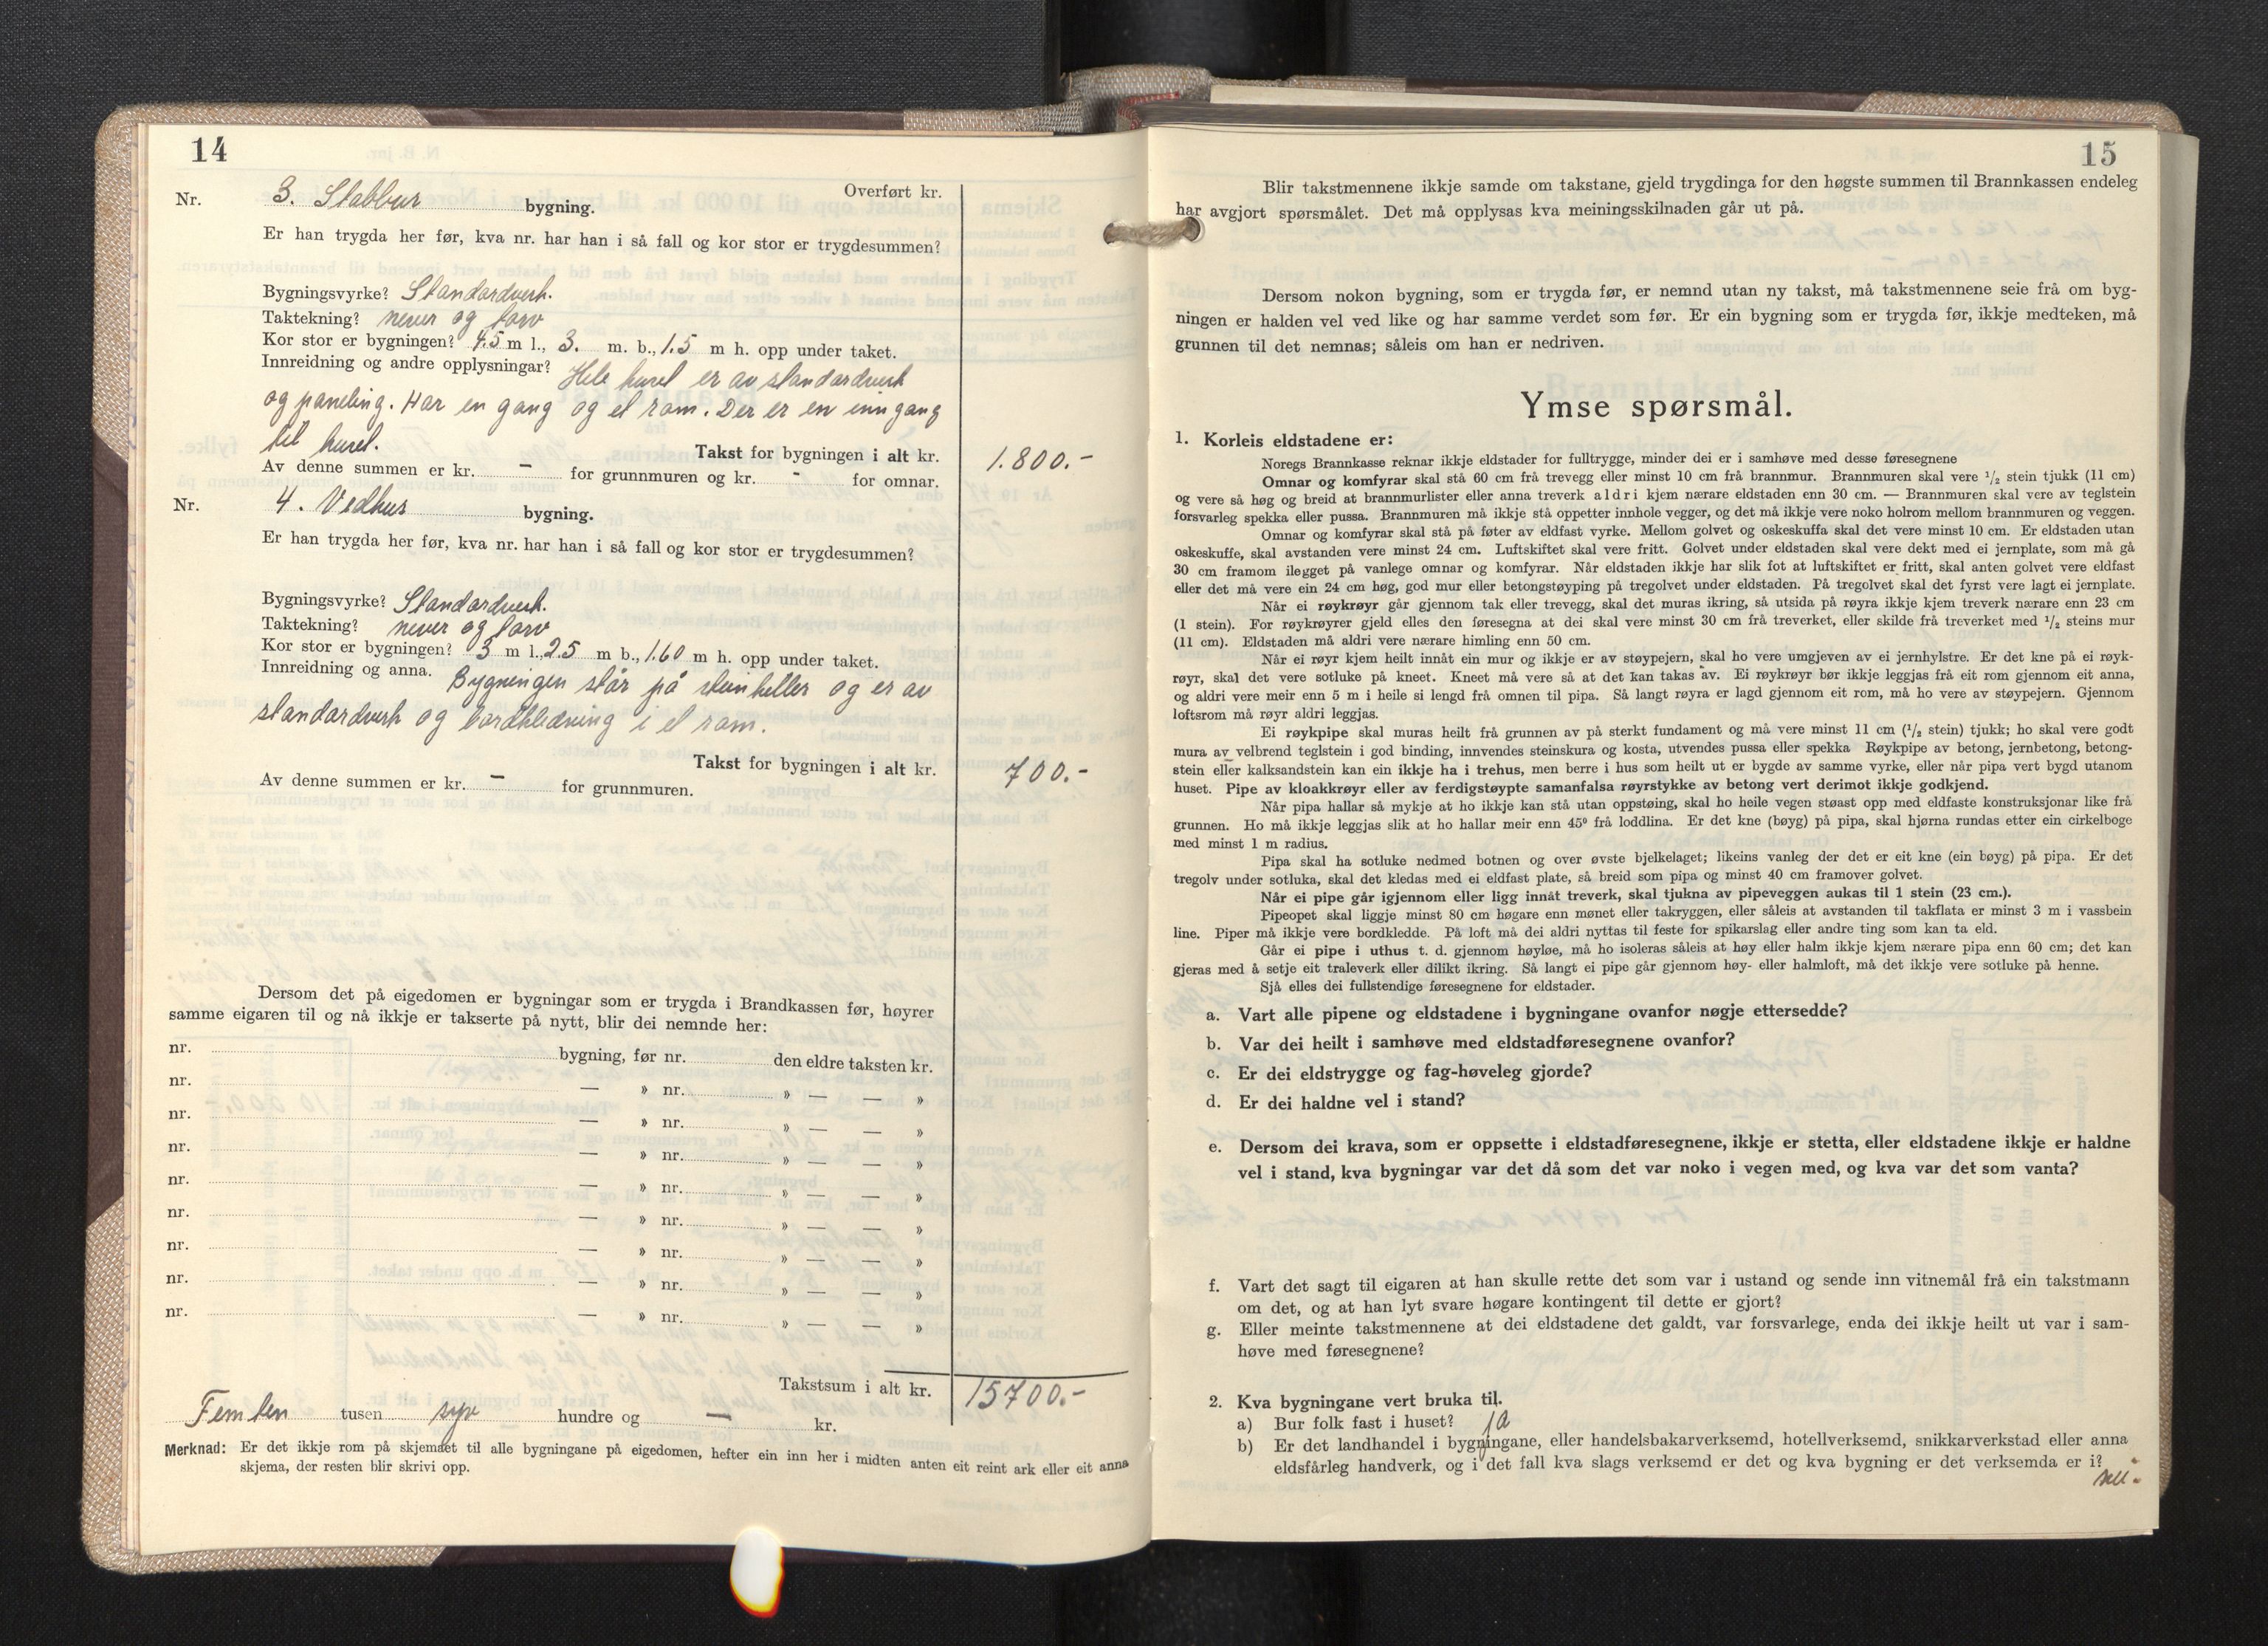 14
Overført kr.
Nr. 3. Stabbur bygning.
Er han trygda her før, kva nr. har han i så fall og kor stor er trygdesummen?
Bygningsvyrke? Standardverk.
Taktekning? never og torv
Kor stor er bygningen? 4.5 m l., 3. m. b., 1.5 m h. opp under taket.
Innreidning og andre opplysningar? Hele huset er av standardverk
og paneling. Har en gang og et rom. Der er en inngang
til huset.
Takst for bygningen i alt kr. 1.800.-
Av denne summen er kr. - for grunnmuren og kr. - for omnar.
Nr. 4. Vedhus bygning.
Er han trygda her før, kva nr. har han i så fall og kor stor er trygdesummen?
Bygningsvyrke? Standardverk.
Taktekning? never og torv
Kor stor er bygningen? 3 m l., 2.5 m b., 1.60 m h. opp under taket.
Innreidning og anna. Bygningen står på steinheller og er av
standardverk og bordkledning i et rom.
Takst for bygningen i alt kr. 700.-
Av denne summen er kr. - for grunnmuren.
Dersom det på eigedomen er bygningar som er trygda i Brandkassen før, høyrer
samme eigaren til og nå ikkje er takserte på nytt, blir dei nemnde her:
nr. bygning, før nr. den eldre taksten kr.
nr. — » nr. » — — »
nr. — » nr. » — — »
nr. — » nr. » — — »
nr. — » nr. » — — »
nr. — » nr. » — — »
nr. — » nr. » — — »
nr. — » nr. » — — »
nr. — » nr. » — — »
Takstsum i alt kr. 15700.-
Femten tusen syv hundre og — kr.
Merknad: Er det ikkje rom på skjemaet til alle bygningane på eigedomen, hefter ein inn her i midten anten eit reint ark eller eit anna
skjema, der resten blir skrivi opp.
15
Blir takstmennene ikkje samde om takstane, gjeld trygdinga for den høgste summen til Brannkassen endeleg
har avgjort spørsmålet. Det må opplysas kva meiningsskilnaden går ut på.
Dersom nokon bygning, som er trygda før, er nemnd utan ny takst, må takstmennene seie frå om byg-
ningen er halden vel ved like og har samme verdet som før. Er ein bygning som er trygda før, ikkje medteken, må
grunnen til det nemnas; såleis om han er nedriven.
Ymse spørsmål.
1. Korleis eldstadene er:
Noregs Brannkasse reknar ikkje eldstader for fulltrygge, minder dei er i samhøve med desse føresegnene
Omnar og komfyrar skal stå 60 cm frå trevegg eller minst 10 cm frå brannmur. Brannmuren skal vere 1/2 stein tjukk (11 cm)
og vere så høg og breid at brannmurlister eller anna treverk aldri kjem nærare eldstaden enn 30 cm. — Brannmuren skal vere av teglstein
forsvarleg spekka eller pussa. Brannmuren må ikkje stå oppetter innhole vegger, og det må ikkje vere noko holrom mellom brannmuren og veggen.
Omnar og komfyrar skal stå på føter av eldfast vyrke. Mellom golvet og oskeskuffa skal det vere minst 10 cm. Er eldstaden utan
oskeskuffe, skal avstanden vere minst 24 cm. Luftskiftet skal vere fritt. Golvet under eldstaden skal vere dekt med ei jernplate, som må gå
30 cm framom ilegget på vanlege omnar og komfyrar. Når eldstaden ikkje har slik fot at luftskiftet er fritt, skal anten golvet vere eldfast
eller det må vere ein 24 cm høg, god mur eller betongstøyping på tregolvet under eldstaden. På tregolvet skal det fyrst vere lagt ei jernplate.
Når ei røykrøyr går gjennom tak eller trevegg, skal det muras ikring, så utsida på røyra ikkje kjem treverk nærare enn 23 cm
(1 stein). For røykrøyrer gjeld elles den føresegna at dei skal vere minst 30 cm frå treverket, eller skilde frå treverket med 1/2 steins mur
(11 cm). Eldstaden må aldri vere nærare himling enn 50 cm.
Når ei røyr kjem heilt innåt ein mur og ikkje er av støypejern, skal ho vere umgjeven av ei jernhylstre. Er det kne på ei røyk-
røyr, skal det vere sotluke på kneet. Kneet må vere så at det kan takas av. Ei røykrøyr bør ikkje leggjas frå eit rom gjennom eit anna,
og aldri vere meir enn 5 m i heile si lengd frå omnen til pipa. Så langt røyra er lagd gjennom eit rom, må ho vere av støypejern. Gjennom
loftsrom må røyr aldri leggjas.
Ei røykpipe skal muras heilt frå grunnen av på sterkt fundament og må vere minst 11 cm (1/2 stein) tjukk; ho skal vere godt
mura av velbrend teglstein i god binding, innvendes steinskura og kosta, utvendes pussa eller spekka Røykpipe av betong, jernbetong, betong-
stein eller kalksandstein kan ein ikkje ha i trehus, men berre i hus som heilt ut er bygde av samme vyrke, eller når pipa vert bygd utanom
huset. Pipe av kloakkrøyr eller av ferdigstøypte samanfalsa røyrstykke av betong vert derimot ikkje godkjend.
Når pipa hallar så mykje at ho ikkje kan stå utan oppstøing, skal ho heile vegen støast opp med eldfaste konstruksjonar like frå
grunnen. Ho må ikkje leggjas slik at ho hallar meir enn 45° frå loddlina. Er det kne (bøyg) på pipa, skal hjørna rundas etter ein cirkelboge
med minst 1 m radius.
Pipa skal ha sotluke nedmed botnen og over øvste bjelkelaget; likeins vanleg der det er eit kne (ein bøyg) på pipa. Er det
tregolv under sotluka, skal det kledas med ei eldfast plate, så breid som pipa og minst 40 cm framover golvet.
Når ei pipe går igjennom eller ligg innåt treverk, skal tjukna av pipeveggen aukas til 1 stein (23 cm.).
Pipeopet skal liggje minst 80 cm høgare enn mønet eller takryggen, eller såleis at avstanden til takflata er minst 3 m i vassbein
line. Piper må ikkje vere bordkledde. På loft må dei aldri nyttas til feste for spikarslag eller andre ting som kan ta eld.
Går ei pipe i uthus t. d. gjennom høyløe, må ho isoleras såleis at høy eller halm ikkje kjem nærare pipa enn 60 cm; det kan
gjeras med å setje eit traleverk eller dilikt ikring. Så langt ei pipe går gjennom høy- eller halmloft, må det ikkje vere sotluke på henne.
Sjå elles dei fullstendige føresegnene for eldstader.
a. Vart alle pipene og eldstadene i bygningane ovanfor nøgje ettersedde?
b. Var dei heilt i samhøve med eldstadføresegnene ovanfor?
c. Er dei eldstrygge og fag-høveleg gjorde?
d. Er dei haldne vel i stand?
e. Dersom dei krava, som er oppsette i eldstadføresegnene, ikkje er stetta, eller eldstadene ikkje er haldne
vel i stand, kva bygningar var det då som det var noko i vegen med, og kva var det som vanta?
f. Vart det sagt til eigaren at han skulle rette det som var i ustand og sende inn vitnemål frå ein takstmann
om det, og at han lyt svare høgare kontingent til dette er gjort?
g. Eller meinte takstmennene at dei eldstadene det galdt, var forsvarlege, enda dei ikkje heilt ut var i sam-
høve med føresegnene?
2. Kva bygningane vert bruka til.
a) Bur folk fast i huset? ja
b) Er det landhandel i bygningane, eller handelsbakarverksemd, hotellverksemd, snikkarverkstad eller anna
eldsfårleg handverk, og i det fall kva slags verksemd er det og kva bygning er det verksemda er i?
nei.